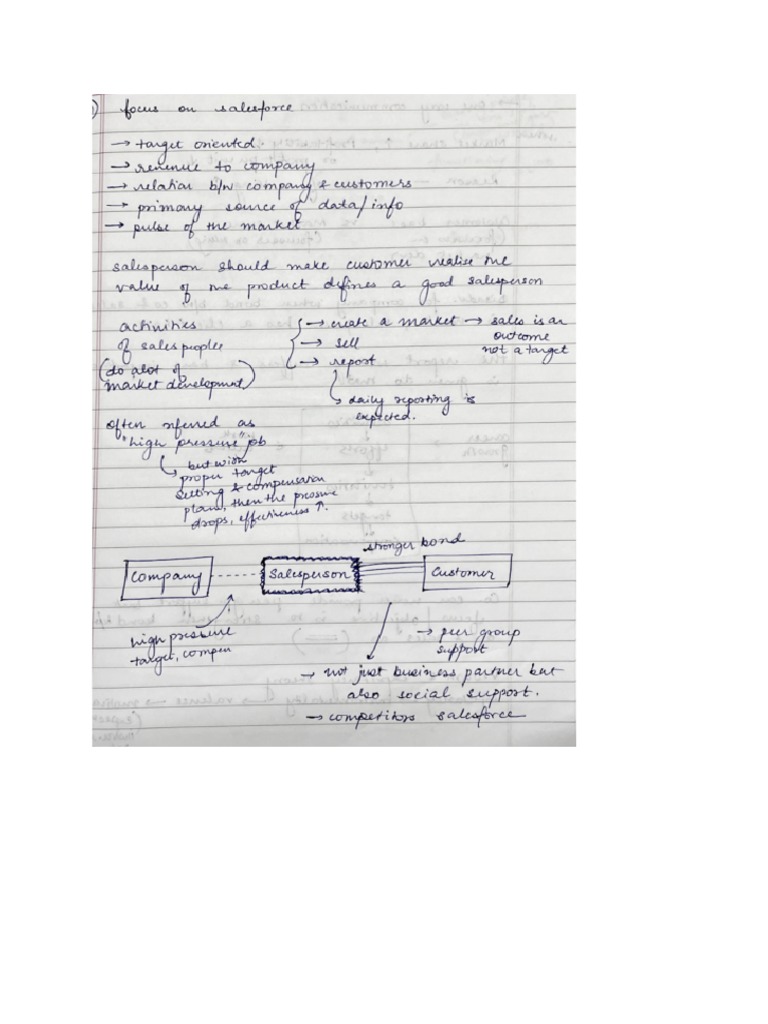 focus on salesforce
→ target oriented
→ revenue to company
→ relation b/w company & customers
→ primary source of data/info
→ pulse of the market
salesperson should make customer realise the
value of the product defines a good salesperson
activities
of salespeople
(do alot of
market development)
→ create a market → sales is an
outcome
not a target
→ sell
→ report
↳ daily reporting is
expected.
often referred as
"high pressure" job
↳ but with
proper target
setting & compensation
plans, then the pressure
drops, effectiveness ↑.
stronger bond
Company Salesperson Customer
high pressure
target, compen
→ peer group
support
→ not just business partner but
also social support.
→ competitors salesforce